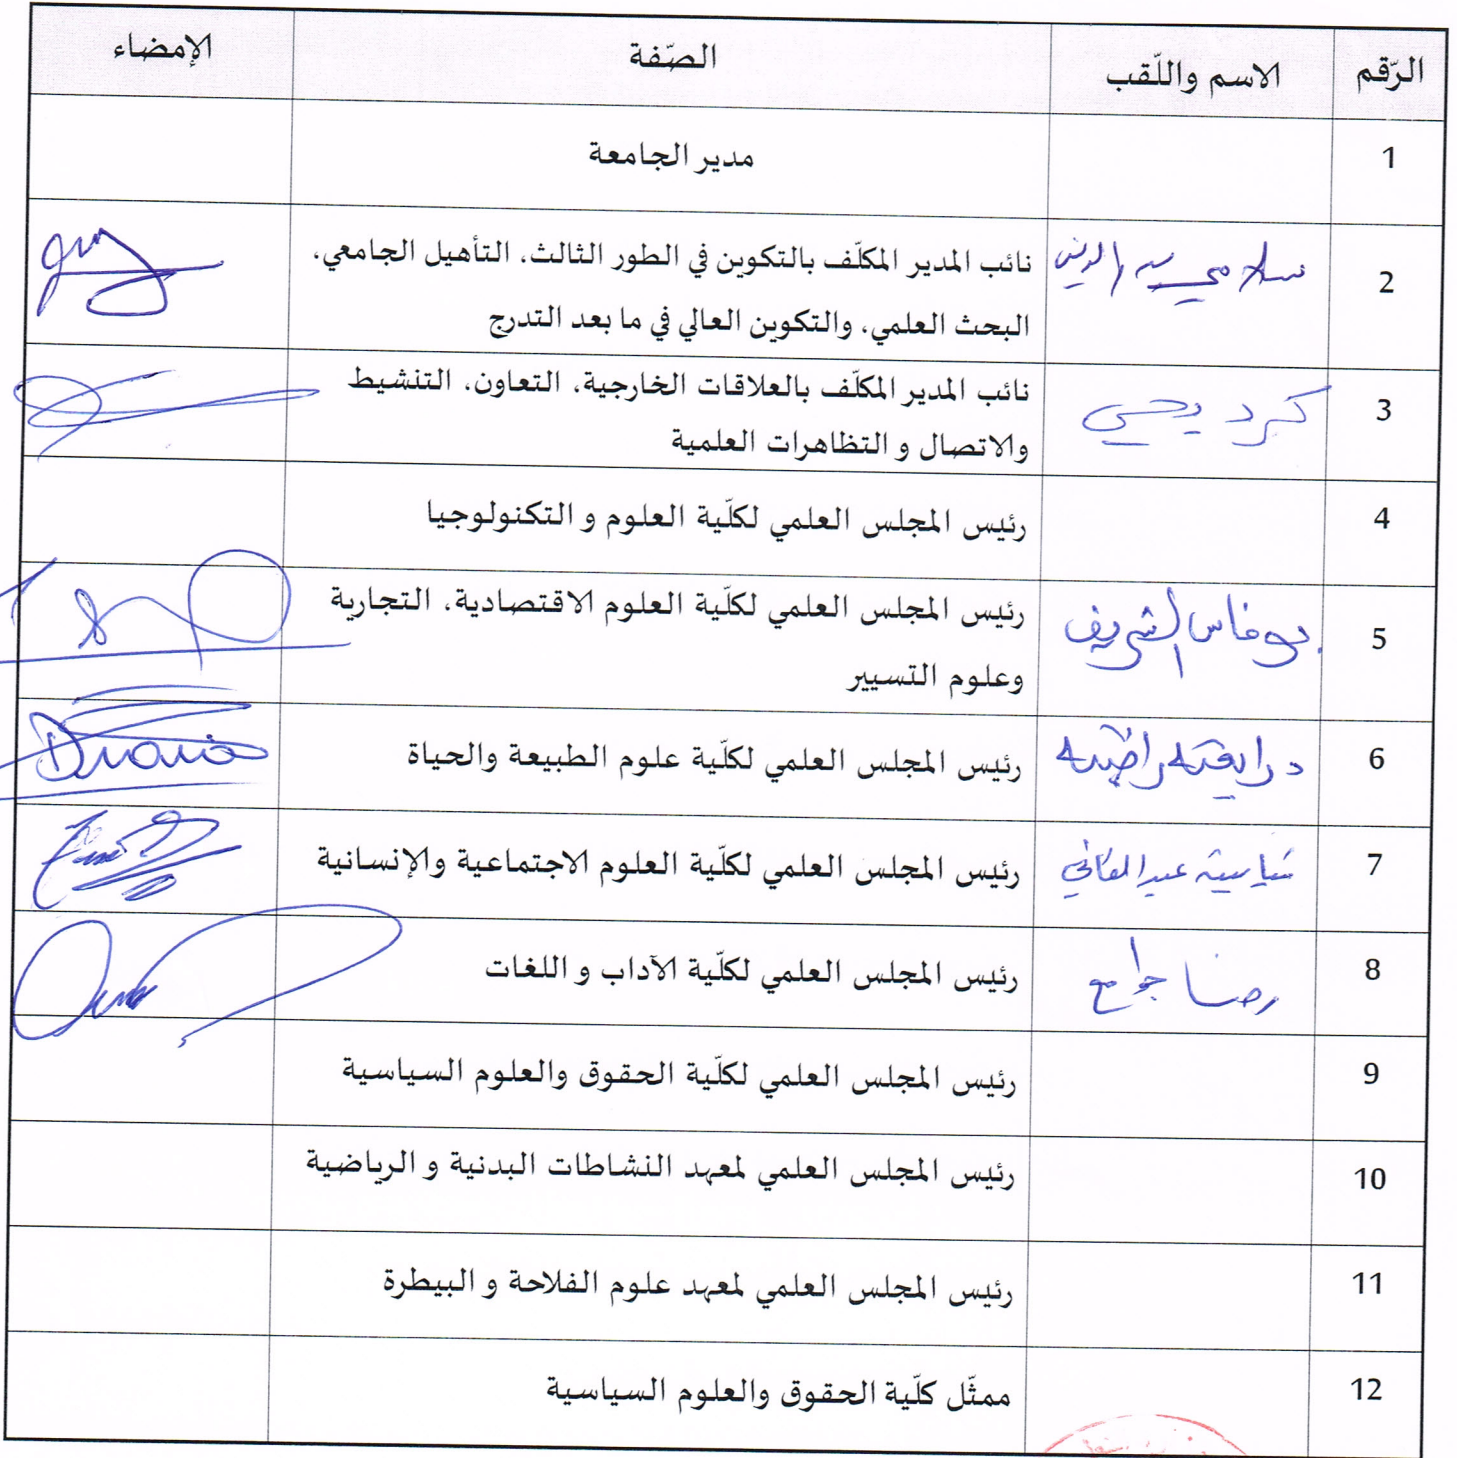 الرّقم الاسم واللّقب الصّفة الإمضاء
1 مدير الجامعة
2 نائب المدير المكلّف بالتكوين في الطور الثالث، التأهيل الجامعي،
البحث العلمي، والتكوين العالي في ما بعد التدرج
3 كرد يحيى نائب المدير المكلّف بالعلاقات الخارجية، التعاون، التنشيط
والاتصال و التظاهرات العلمية
4 رئيس المجلس العلمي لكلّية العلوم و التكنولوجيا
5 بوفاس الشريف رئيس المجلس العلمي لكلّية العلوم الاقتصادية، التجارية
وعلوم التسيير
6 رئيس المجلس العلمي لكلّية علوم الطبيعة والحياة
7 رئيس المجلس العلمي لكلّية العلوم الاجتماعية والإنسانية
8 رضا جوامع رئيس المجلس العلمي لكلّية الآداب و اللغات
9 رئيس المجلس العلمي لكلّية الحقوق والعلوم السياسية
10 رئيس المجلس العلمي لمعهد النشاطات البدنية و الرياضية
11 رئيس المجلس العلمي لمعهد علوم الفلاحة و البيطرة
12 ممثّل كلّية الحقوق والعلوم السياسية